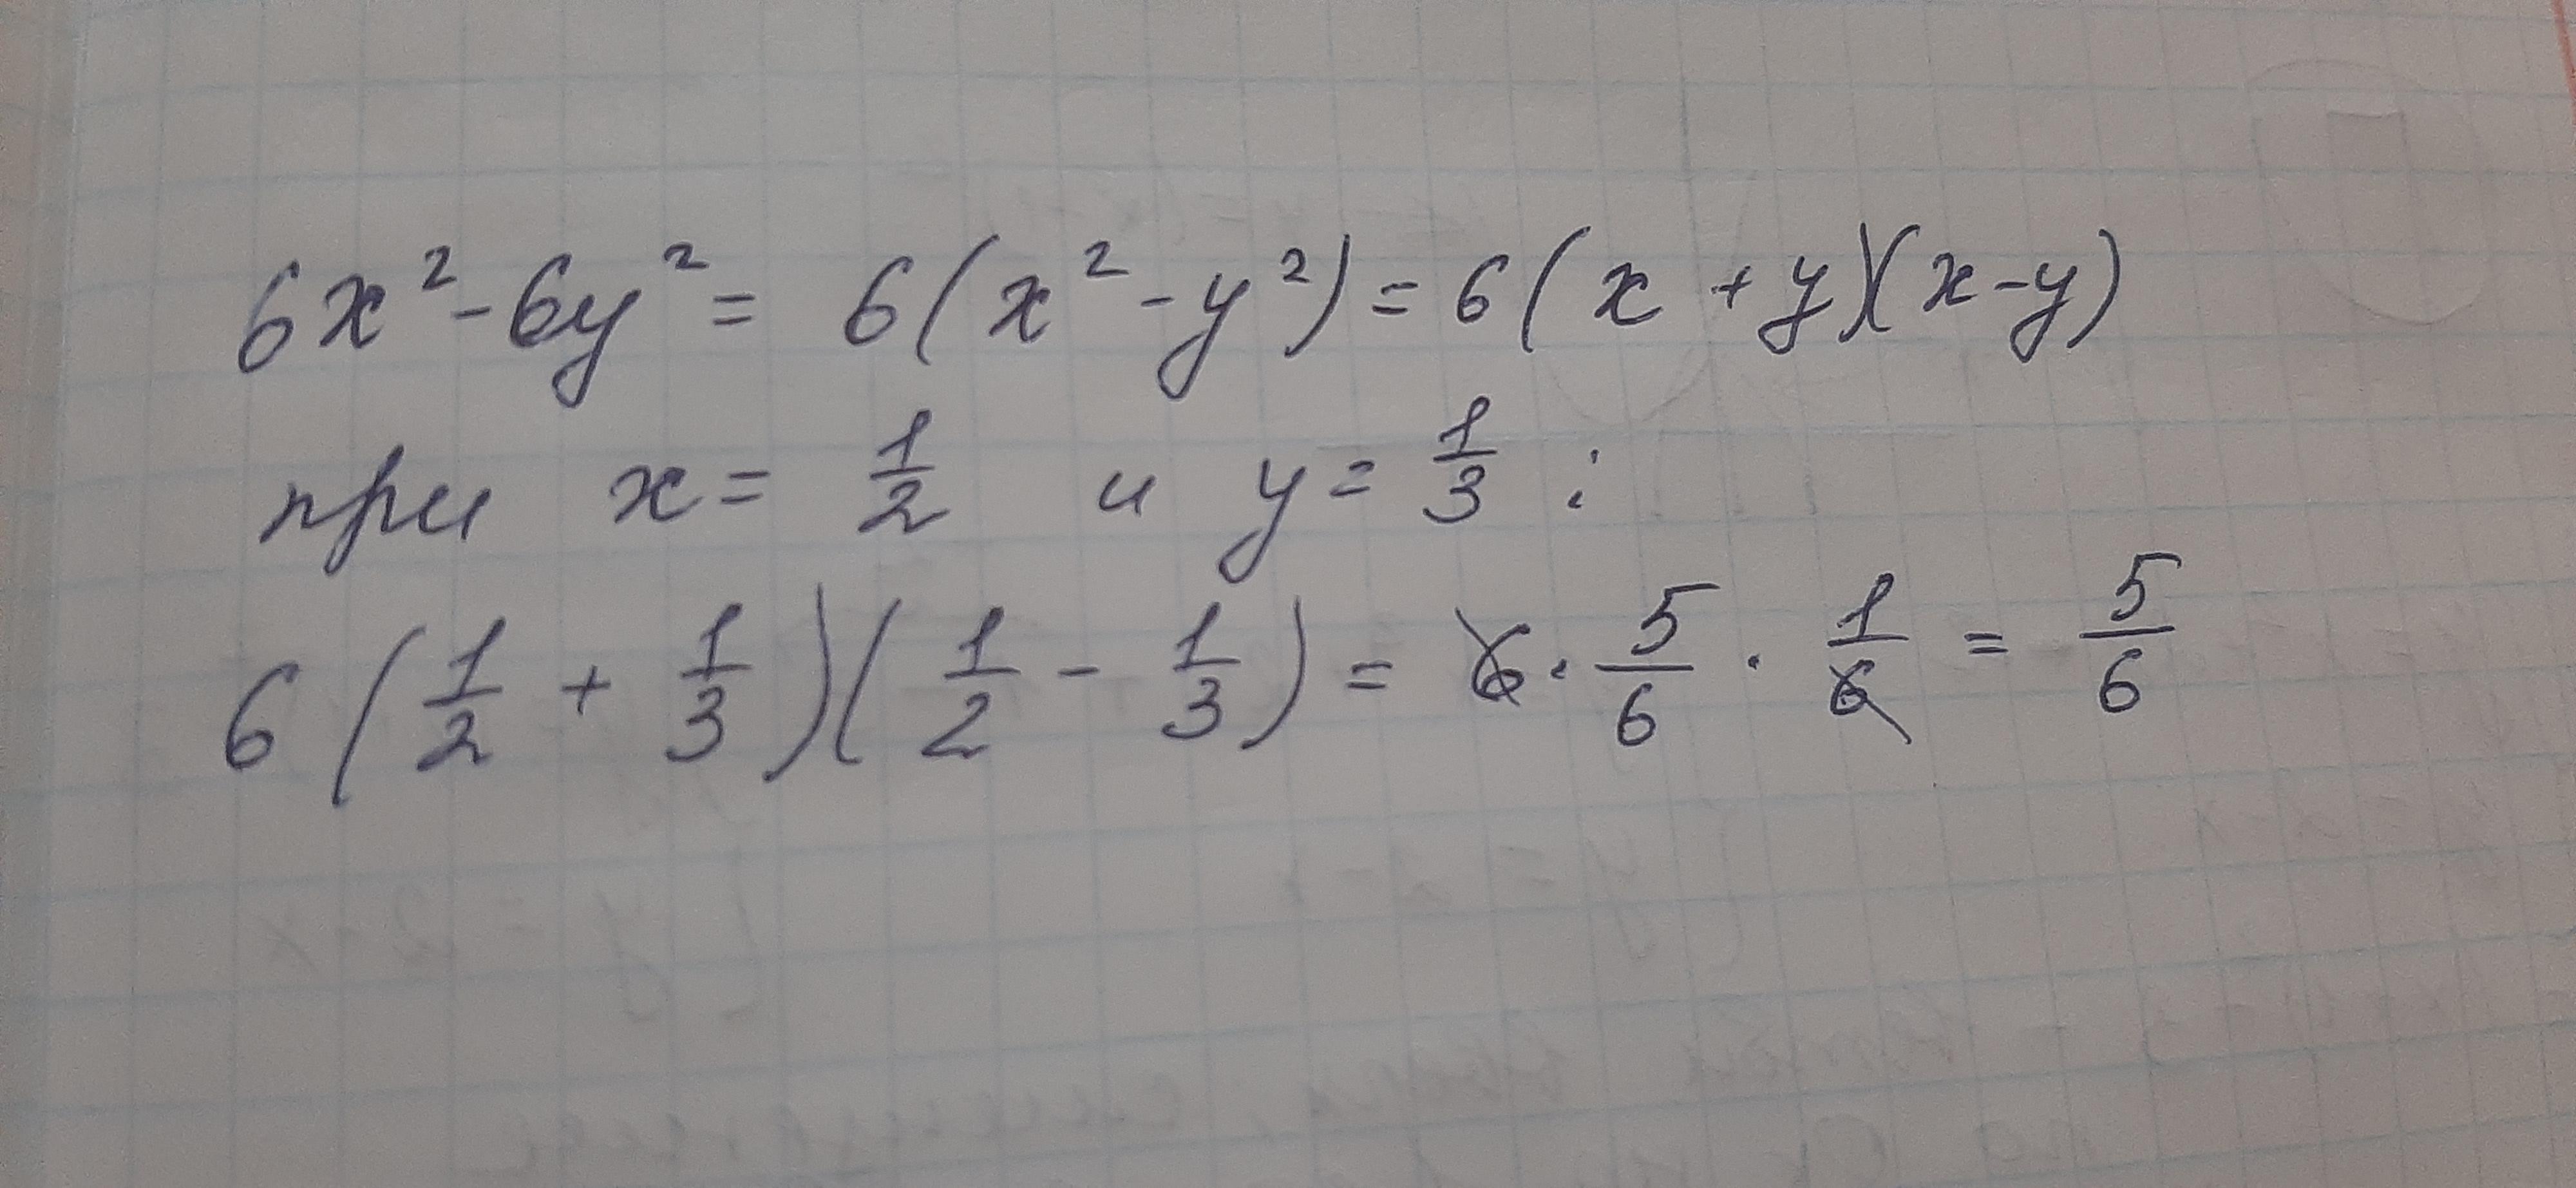 6x² - 6y² = 6(x² - y²) = 6(x + y)(x - y)
при x = 1/2 и y = 1/3 :
6(1/2 + 1/3)(1/2 - 1/3) = 6 · 5/6 · 1/6 = 5/6